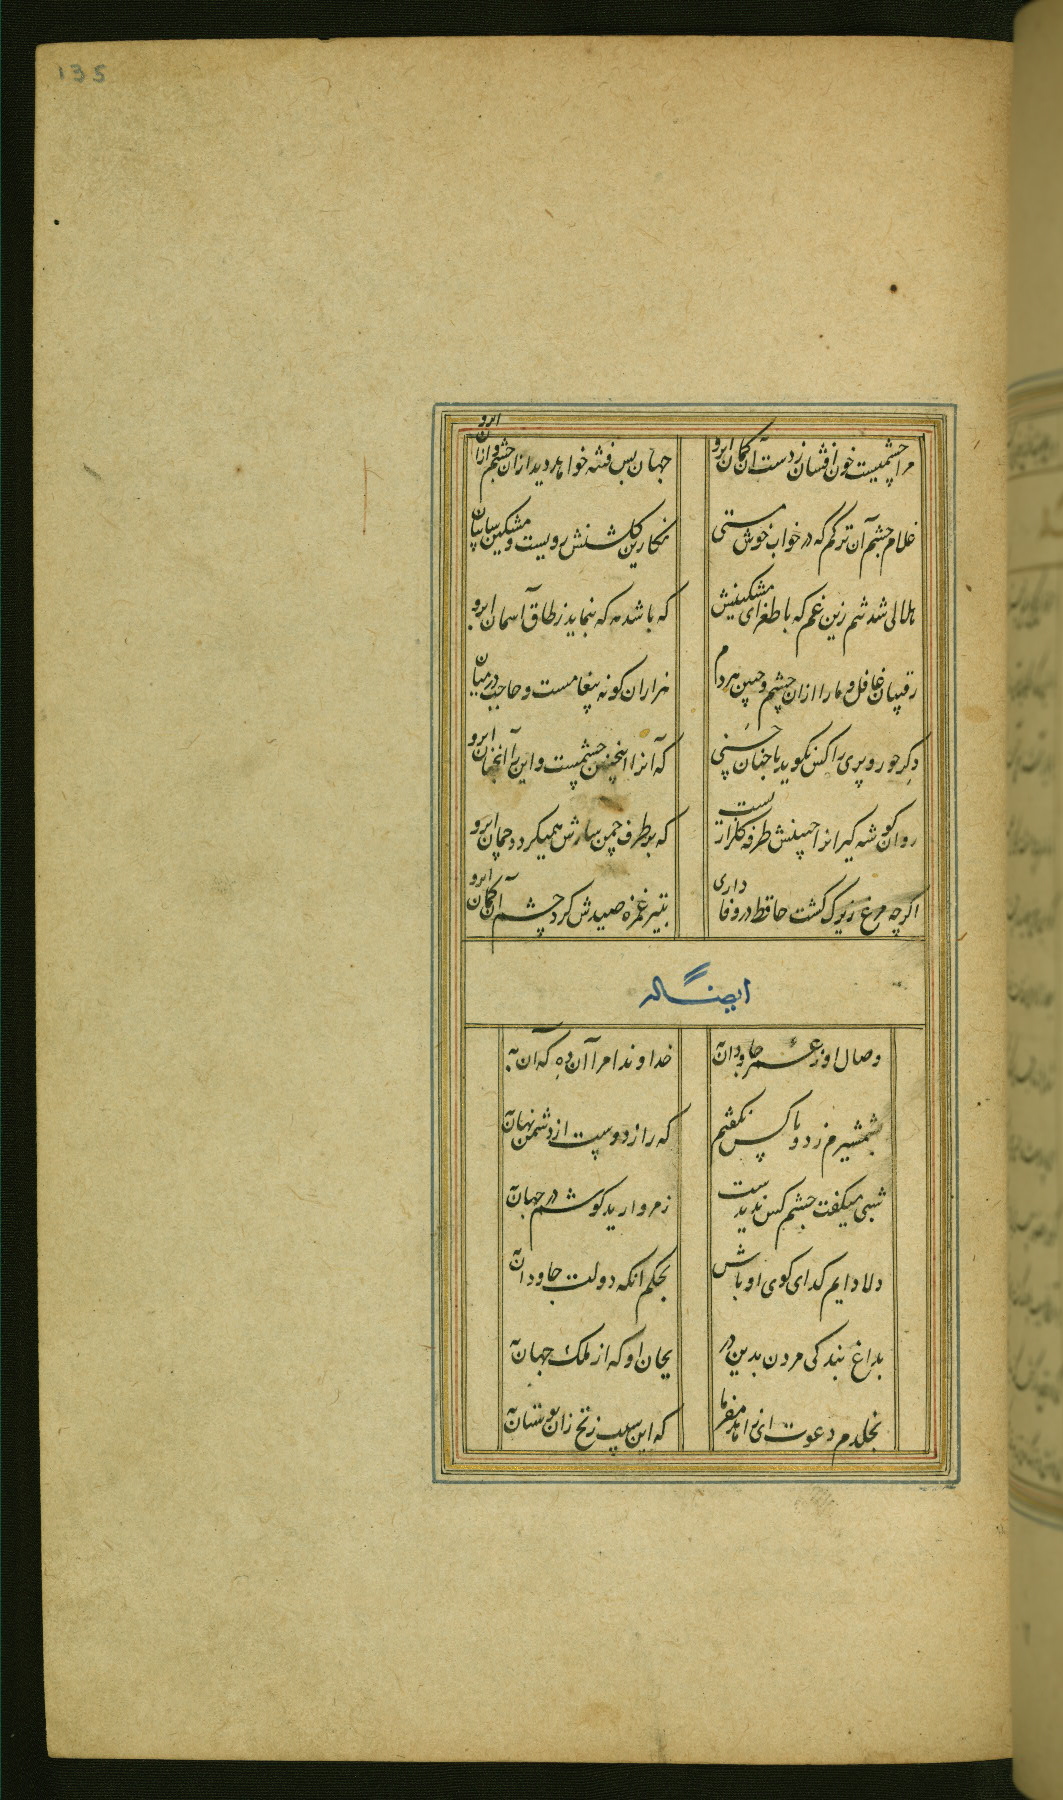 135
مرا چشمیست خون افشان زدست آن کمان ابرو
جهان بس فتنه خواهد دید ازان چشم و ازان ابرو
غلام چشم آن ترکم که در خواب خوش مستی
نکارین کلشنش رویست و مشکین سایبان
هلالی شد تنم زین غم که با طغرای مشکینش
که باشد مه که بنماید ز طاق آسمان ابرو
رقیبان غافل و مارا ازان چشم و جبین هر دم
هزاران کونه پیغامست و حاجب در میان
دکر حور و پری را کس نکوید با چنان حسنی
که آنرا اینچنین چشمیست و این را آنچنان ابرو
روان کوشه کیرانرا جبینش طرفه کلزاریست
که بر طرف چمن زارش همیکردد چمان ابرو
اکرچه مرغ زیرک کشت حافظ در وفاداری
بتیر غمزه صیدش کرد چشم آن کمان ابرو
ایضاً له
وصال او ز عمر جاودان به
خداوندا مرا آن ده که آن به
بشمشیرم زد و با کس نکفتم
که راز دوست از دشمن نهان به
شبی میکفت چشم کس ندیدست
ز مروارید کوشم در جهان به
دلا دایم کدای کوی او باش
بحکم انکه دولت جاودان به
بداغ بندکی مردن بدین در
بجان او که از ملک جهان به
بخلدم دعوت ای زاهد مفرما
که این سیب زنخ زان بوستان به